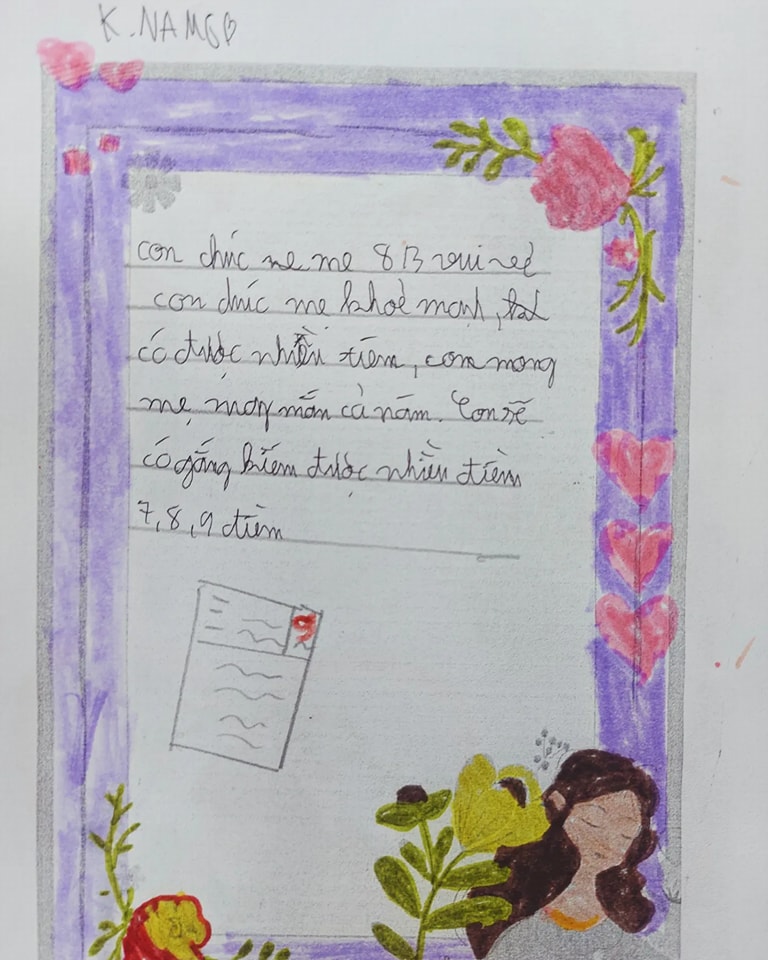 K. NAM
con chúc mẹ 8/3 vui vẻ
con chúc mẹ khoẻ mạnh,
có được nhiều tiềm, con mong
mẹ may mắn cả năm. Con sẽ
có gắng kiếm được nhiều điểm
7, 8, 9 điểm